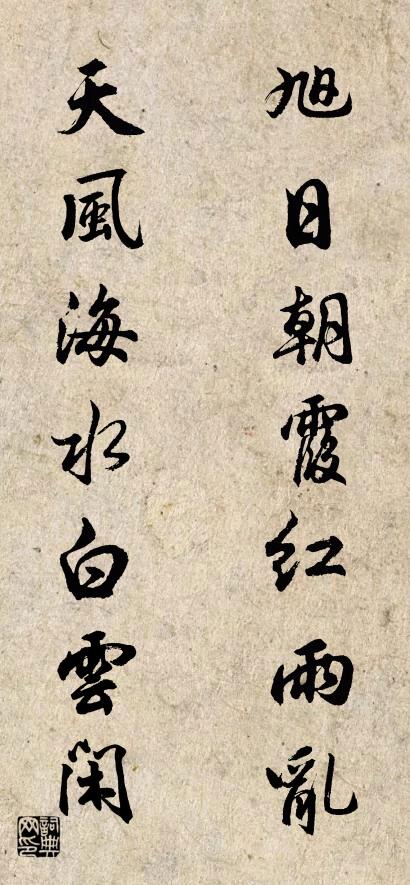 旭日朝霞红雨亂
天風海水白雲閑
詞典网印